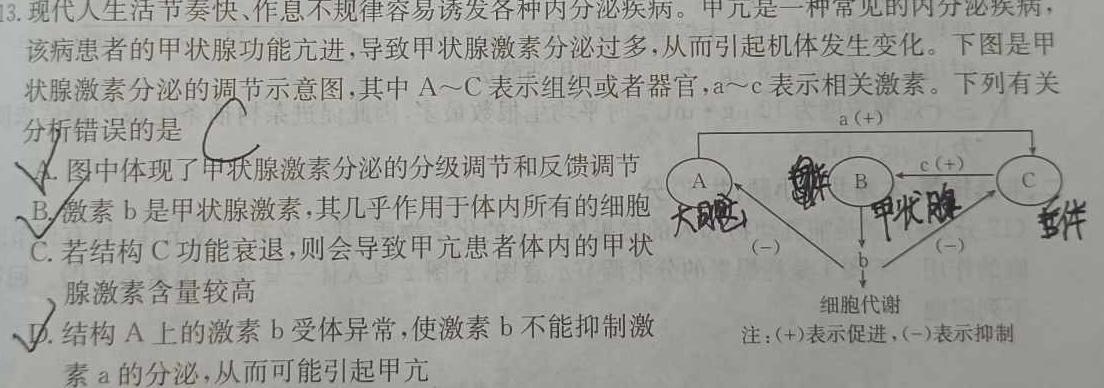 13. 现代人生活节奏快、作息不规律容易诱发各种内分泌疾病。甲亢是一种常见的内分泌疾病，
该病患者的甲状腺功能亢进,导致甲状腺激素分泌过多,从而引起机体发生变化。下图是甲
状腺激素分泌的调节示意图,其中 A～C 表示组织或者器官,a～c 表示相关激素。下列有关
分析错误的是 C
A. 图中体现了甲状腺激素分泌的分级调节和反馈调节
B. 激素 b 是甲状腺激素,其几乎作用于体内所有的细胞
C. 若结构 C 功能衰退,则会导致甲亢患者体内的甲状
腺激素含量较高
D. 结构 A 上的激素 b 受体异常,使激素 b 不能抑制激
素 a 的分泌,从而可能引起甲亢
a(+)
A
B
c(+)
C
大脑
甲状腺
垂体
(-)
(-)
b
细胞代谢
注:(+)表示促进,(-)表示抑制